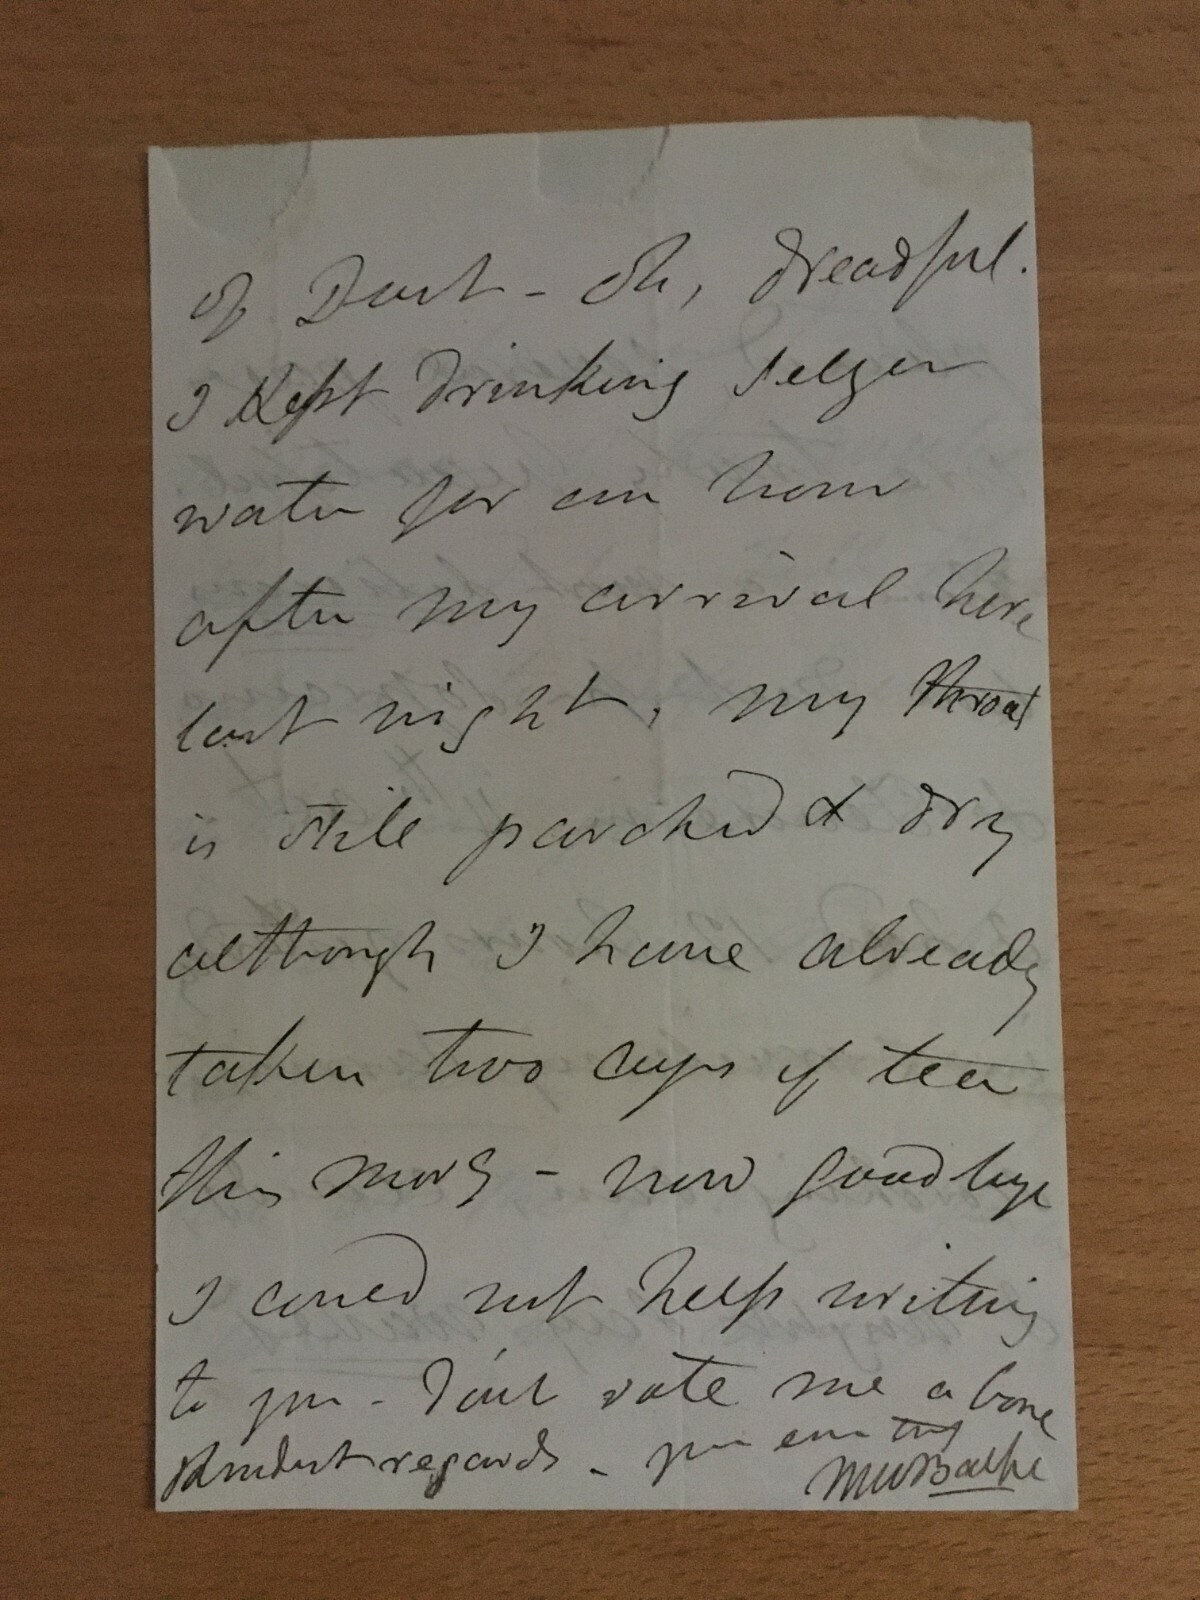 of Dust - Oh, dreadful.
I Kept drinking Selzer
water for an hour
after my arrival here
last night, my throat
is still parched & dry
although I have already
taken two cups of tea
this morg - now goodbye
I could not help writing
to you - Don't vote me a bore
Kindest regards - yrs ever truly
MWBalfe